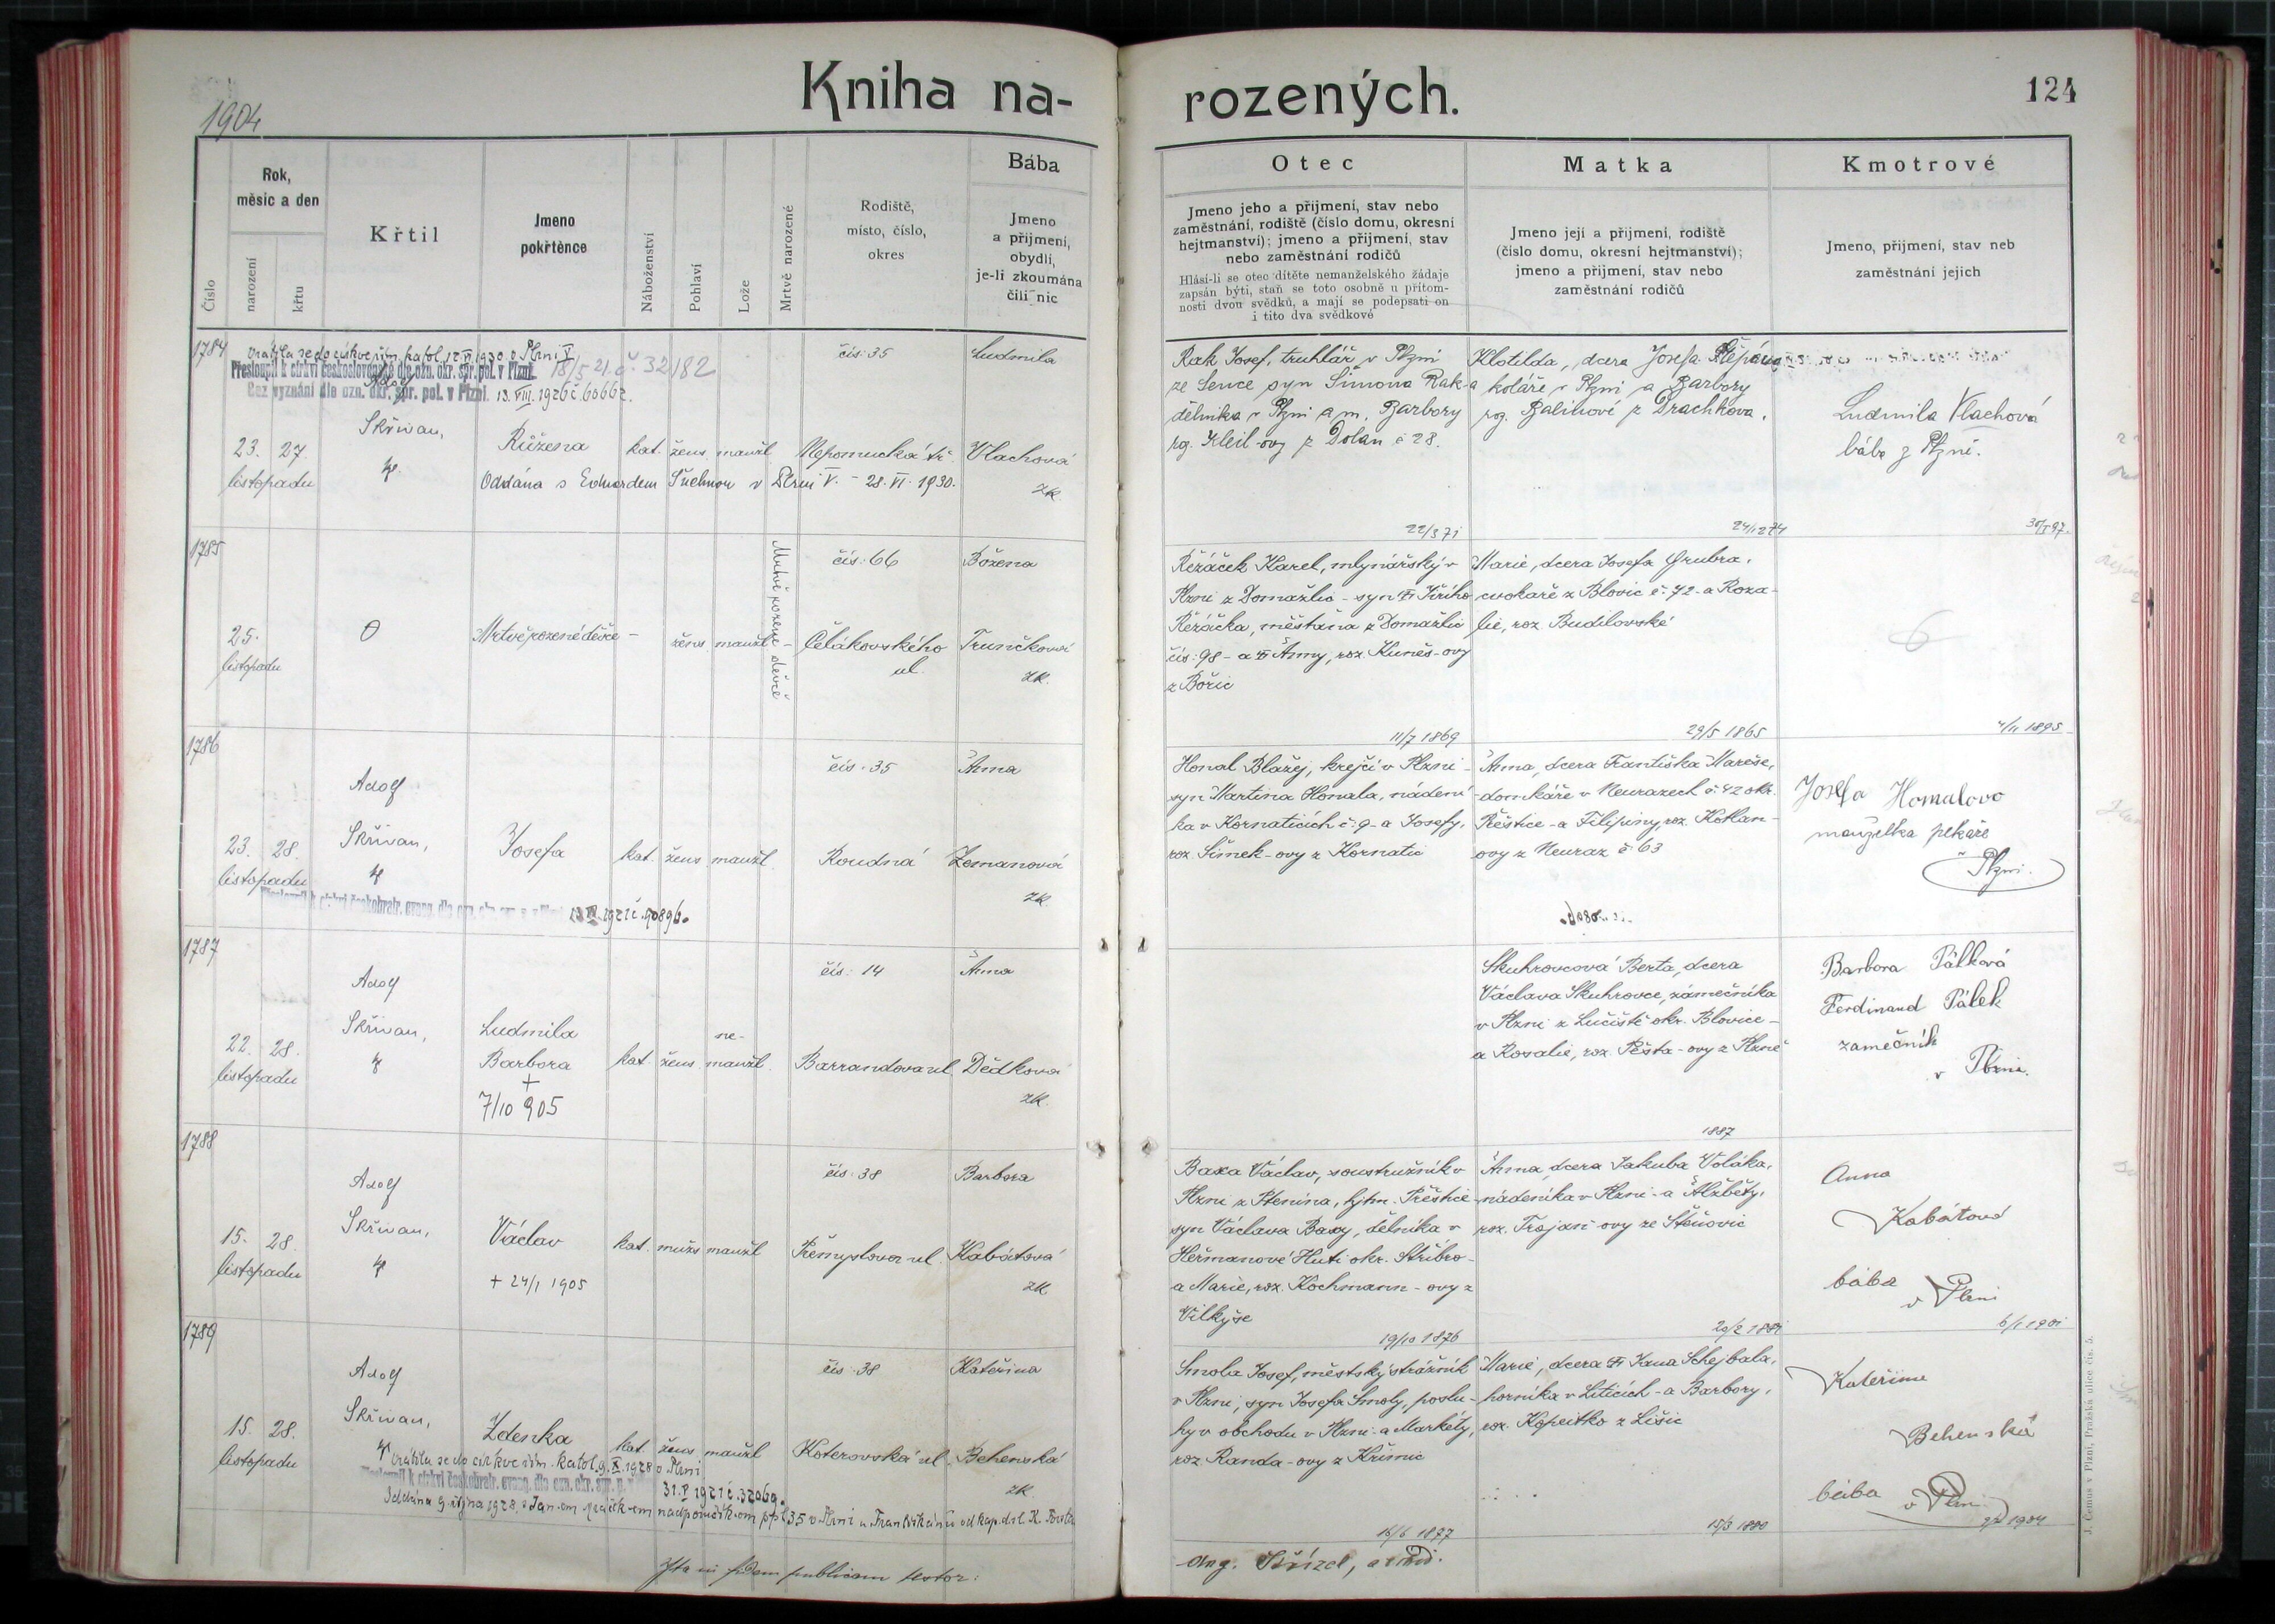 1904
Kniha na-
rozených.
124
Číslo
Rok,
měsíc a den
narození
křtu
Křtil
Jmeno
pokřtěnce
Náboženství
Pohlaví
Lože
Mrtvě narozené
Rodiště,
místo, číslo,
okres
Bába
Jmeno
a příjmení,
obydlí,
je-li zkoumána
čili nic
Otec
Jmeno jeho a příjmení, stav nebo
zaměstnání, rodiště (číslo domu, okresní
hejtmanství); jmeno a příjmení, stav
nebo zaměstnání rodičů
Hlásí-li se otec dítěte nemanželského žádaje
zapsán býti, staň se toto osobně u přítom-
nosti dvou svědků, a mají se podepsati on
i tito dva svědkové
Matka
Jmeno její a příjmení, rodiště
(číslo domu, okresní hejtmanství);
jmeno a příjmení, stav nebo
zaměstnání rodičů
Kmotrové
Jmeno, příjmení, stav neb
zaměstnání jejich
1784
Vrátila se do církve řím. katol. 17. VI 1930 v Plzni V
Přestoupil k církvi československé dle ozn. okr. spr. pol. v Plzni. 18/5 21 č. 32182
Bez vyznání dle ozn. okr. spr. pol. v Plzni. 13. VIII. 1926 č. 60662.
23. 27.
listopadu
Adolf
Skřivan,
Růžena
kat. žens. manžl.
čís: 35
Nepomucká tř.
Ludmila
Vlachová
zk.
Oddána s Eduardem Suchnou v Plzni V. - 28. VI. 1930.
Rak Josef, truhlář v Plzni
ze Sence syn Šimona Rak-a
dělníka v Plzni a m. Barbory
rg. Kleil-ovy z Dolan č 28.
22/3 71
Klotilda, dcera Josefa Štěpána
koláře v Plzni a Barbory
rg. Balínové z Drachkova.
24/12 74
Ludmila Vlachová
bába z Plzně.
30/I 97.
1785
25.
listopadu
0
Mrtvěrozené děvče -
žens. manžl. -
Mrtvě rozené děvče
čís: 66
Čelákovského
ul.
Božena
Trunčková
zk.
Řežáček Karel, mlynářský v
Plzni z Domažlic - syn Jiřího
Řežáčka, měšťana z Domažlic
čís: 98 - a Anny, roz. Kuneš-ovy
z Bořic
11/7 1869
Marie, dcera Josefa Grubra,
cvokaře z Blovic č: 72 - a Roza-
lie, roz. Budilovské
29/5 1865
4/11 1895
1786
23. 28.
listopadu
Adolf
Skřivan,
Josefa
kat. žens. manžl.
čís: 35
Roudná
Anna
Zemanová
zk.
Přestoupil k církvi českobratr. evang. dle ozn. okr. spr. p. v Plzni 1921 č. 90896.
Homal Blažej, krejčí v Plzni -
syn Martina Homala, nádení-
ka v Kornaticích č: 9 - a Josefy,
roz. Šimek-ovy z Kornatic
Anna, dcera Františka Mareše,
domkáře v Neurazech č: 42 okr.
Přeštice - a Filipiny, roz. Kotlan-
ovy z Neuraz č 63
Josefa Homalova
manželka pekaře
v Plzni.
1787
22. 28.
listopadu
Adolf
Skřivan,
Ludmila
Barbora
+
7/10 905
kat. žens. ne-
manžl.
čís: 14
Barrandova ul.
Anna
Dědková
zk.
Skuhrovcová Berta, dcera
Václava Skuhrovce, zámečníka
v Plzni z Lučiště okr. Blovice -
a Rosalie, roz. Pešta-ovy z Plzně
1887
Barbora Pálková
Ferdinand Pálek
zámečník
v Plzni.
1788
15. 28.
listopadu
Adolf
Skřivan,
Václav
+ 24/1 1905
kat. mužs. manžl.
čís: 38
Přemyslova ul.
Barbora
Kabátová
zk.
Baxa Václav, soustružník v
Plzni z Ptenína, hjtm. Přeštice -
syn Václava Baxy, dělníka v
Heřmanově Huti okr. Stříbro -
a Marie, roz. Kochmann-ovy z
Vilkýše
19/10 1876
Anna, dcera Jakuba Voláka,
nádeníka v Plzni - a Alžběty,
roz. Trojan-ovy ze Štěnovic
20/2 1881
Anna
Kabátová
bába
v Plzni
6/1 1901
1789
15. 28.
listopadu
Adolf
Skřivan,
Zdenka
kat. žens. manžl.
čís: 38
Koterovská ul.
Kateřina
Behenská
zk.
Vrátila se do církve řím. katol. 9. X. 1928 v Plzni
Přestoupil k církvi českobratr. evang. dle ozn. okr. spr. p. v Plzni 31. V 1921 č. 32069.
Oddána 9. října 1928 s Janem nadporučíkem pěš. pl. 35 v Plzni u Františkánů od kap. dst. K.
Smola Josef, městský strážník
v Plzni, syn Josefa Smoly, poslu-
hy v obchodu v Plzni a Markéty,
roz Randa-ovy z Křimic
16/6 1877
Marie, dcera Jana Schejbala,
horníka v Liticích - a Barbory,
roz. Kopeitko z Lišic
15/3 1880
Kateřina
Behenská
bába v Plzni
1904
Ita in fidem publicam testor:
Aug. Střízel, archid.
J. Čemus v Plzni, Pražská ulice čís. 5.